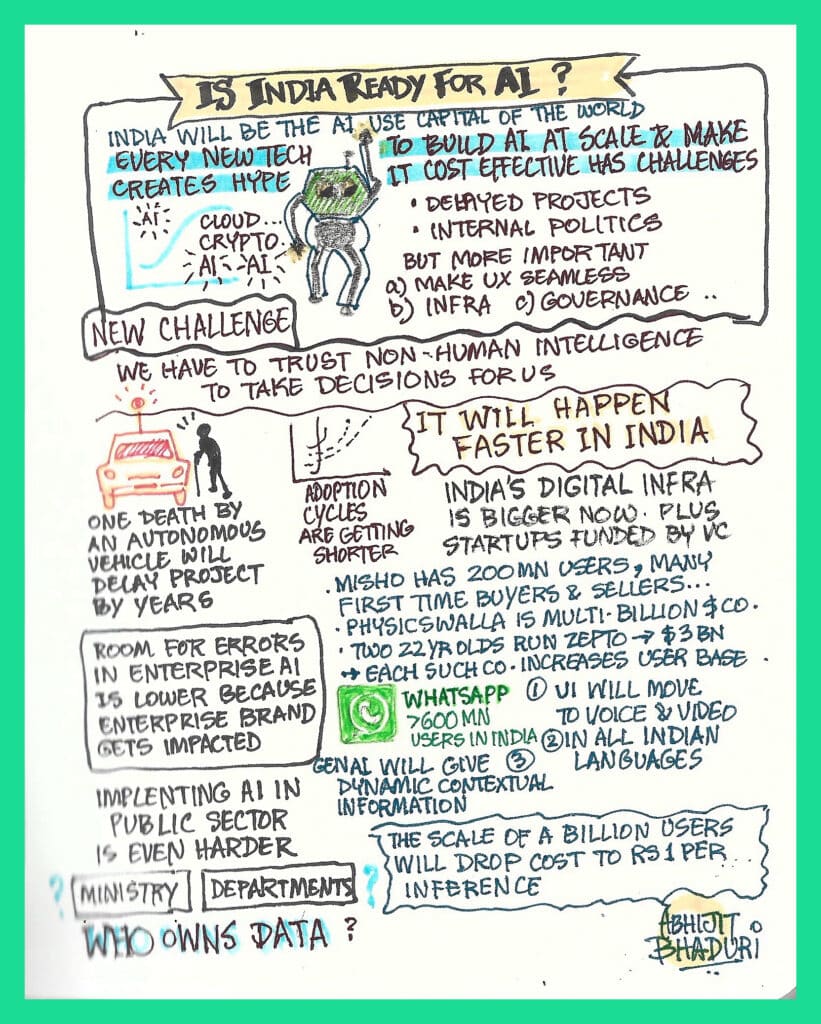 IS INDIA READY FOR AI ?
INDIA WILL BE THE AI USE CAPITAL OF THE WORLD
EVERY NEW TECH
CREATES HYPE
AI
CLOUD...
CRYPTO
AI AI
TO BUILD AI AT SCALE & MAKE
IT COST EFFECTIVE HAS CHALLENGES
• DELAYED PROJECTS
• INTERNAL POLITICS
BUT MORE IMPORTANT
a) MAKE UX SEAMLESS
b) INFRA c) GOVERNANCE ..
NEW CHALLENGE
WE HAVE TO TRUST NON-HUMAN INTELLIGENCE
TO TAKE DECISIONS FOR US
ONE DEATH BY
AN AUTONOMOUS
VEHICLE WILL
DELAY PROJECT
BY YEARS
ADOPTION
CYCLES
ARE GETTING
SHORTER
IT WILL HAPPEN
FASTER IN INDIA
INDIA'S DIGITAL INFRA
IS BIGGER NOW. PLUS
STARTUPS FUNDED BY VC
• MISHO HAS 200MN USERS, MANY
FIRST TIME BUYERS & SELLERS...
• PHYSICSWALLA IS MULTI-BILLION $ CO.
• TWO 22 YR OLDS RUN ZEPTO → $3BN
→ EACH SUCH CO. INCREASES USER BASE .
ROOM FOR ERRORS
IN ENTERPRISE AI
IS LOWER BECAUSE
ENTERPRISE BRAND
GETS IMPACTED
WHATSAPP
>600MN
USERS IN INDIA
① UI WILL MOVE
TO VOICE & VIDEO
② IN ALL INDIAN
LANGUAGES
GENAI WILL GIVE ③
DYNAMIC CONTEXTUAL
INFORMATION
IMPLENTING AI IN
PUBLIC SECTOR
IS EVEN HARDER
? MINISTRY DEPARTMENTS ?
WHO OWNS DATA ?
THE SCALE OF A BILLION USERS
WILL DROP COST TO RS 1 PER...
INFERENCE
ABHIJIT
BHADURI